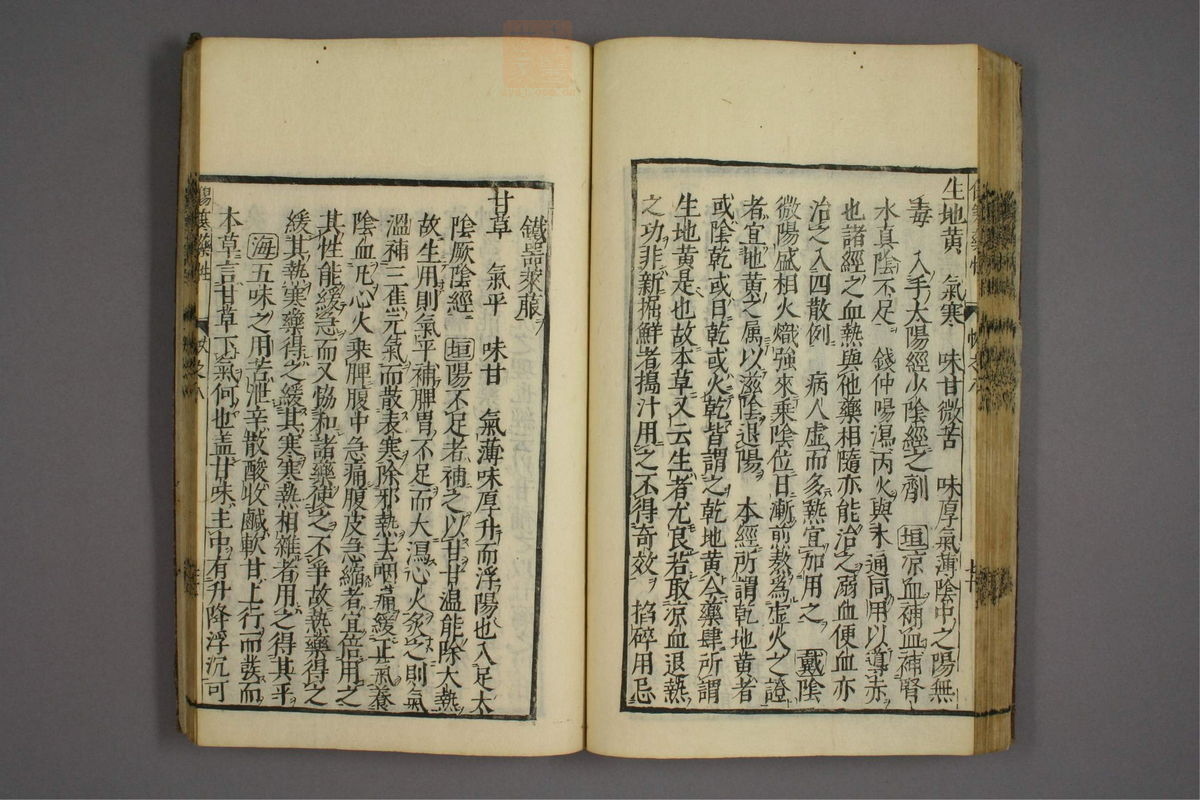 生地黃 氣寒 味甘微苦 味厚氣薄陰中之陽無
毒 入手太陽經少陰經之劑 垣凉血補血補腎
水真陰不足 錢仲陽瀉丙火與木通同用以導赤
也諸經之血熱與他藥相隨亦能治之溺血便血亦
治之入四散例 病人虛而多熱宜加用之 戴陰
微陽盛相火熾強來乘陰位日漸煎熬為虛火之證
者宜地黃之属以滋陰退陽 本經所謂乾地黃者
或陰乾或日乾或火乾皆謂之乾地黃今藥肆所謂
生地黃是也故本草又云生者尤良若取凉血退熱
之功非新掘鮮者搗汁用之不得奇效 掐碎用忌
鐵器萊菔
甘草 氣平 味甘 氣薄味厚升而浮陽也入足太
陰厥陰經 垣陽不足者補之以甘甘温能除大熱
故生用則氣平補脾胃不足而大瀉心火炙之則氣
溫補三焦元氣而散表寒除邪熱去咽痛緩正氣養
陰血凡心火乘脾腹中急痛腹皮急縮者宜倍用之
其性能緩急而又恊和諸藥使之不爭故熱藥得之
緩其熱寒藥得之緩其寒寒熱相雜者用之得其平
海五味之用苦泄辛散酸收鹹軟甘上行而發而
本草言甘草下氣何也盖甘味主中有升降浮沉可